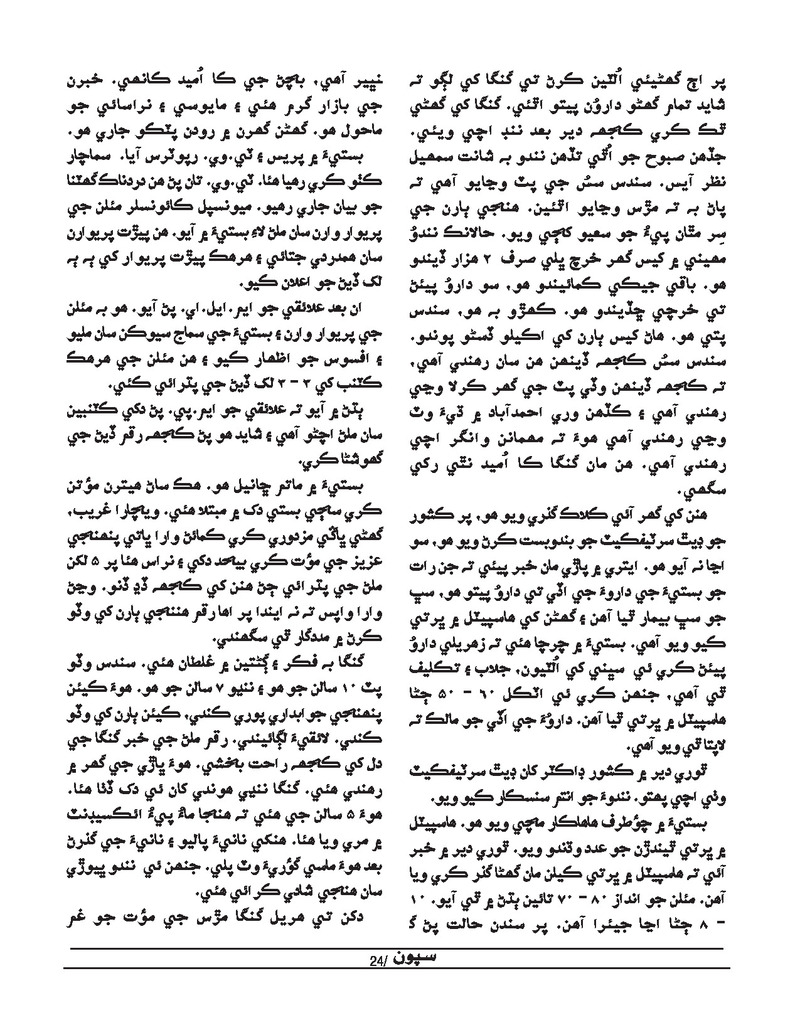 پر اڄ گهڻيئي اُلٽين ڪرڻ تي گنگا کي لڳو تہ
شايد تمام گهڻو دارون پيتو اٿئي. گنگا کي گهڻي
ٿڪ ڪري ڪجهہ دير بعد ننڊ اچي ويئي.
جڏهن صبوح جو اُٿي تڏهن نندو بہ شانت سمهيل
نظر آيس. سندس سسُ جي پٽ وڃايو آهي تہ
پاڻ بہ تہ مڙس وڃايو اٿئين. هنجي ٻارن جي
سِر مٿان پيءُ جو سعيو کڄي ويو. حالانڪ نندوُ
مهيني ۾ کيس گهر خرچ ڀلي صرف ٢ هزار ڏيندو
هو. باقي جيڪي ڪمائيندو هو، سو داروُ پيئڻ
تي خرچي ڇڏيندو هو. ڪهڙو بہ هو، سندس
پتي هو. هاڻ کيس ٻارن کي اڪيلو ڏسڻو پوندو.
سندس سسُ ڪجهہ ڏينهن هن سان رهندي آهي،
تہ ڪجهہ ڏينهن وڏي پٽ جي گهر ڪرلا وڃي
رهندي آهي ۽ ڪڏهن وري احمدآباد ۾ ڌيءَ وٽ
وڃي رهندي آهي هوءَ تہ مهمانن وانگر اچي
رهندي آهي. هن مان گنگا ڪا اُميد نٿي رکي
سگهي.
هنن کي گهر آئي ڪلاڪ گذري ويو هو، پر ڪشور
جو ڊيٿ سرٽيفڪيٽ جو بندوبست ڪرڻ ويو هو، سو
اڃا نہ آيو هو. ايتري ۾ پاڙي مان خبر پيئي تہ جن رات
جو بستيءَ جي داروءَ جي اڏي تي داروُ پيتو هو، سڀ
جو سڀ بيمار ٿيا آهن ۽ گهڻن کي هاسپيٽل ۾ ڀرتي
ڪيو ويو آهي. بستيءَ ۾ چرچا هئي تہ زهريلي داروُ
پيئڻ ڪري ئي سڀني کي اُلٽيون، جلاب ۽ تڪليف
ٿي آهي، جنهن ڪري ئي اٽڪل ٦٠ - ٥٠ ڄڻا
هاسپيٽل ۾ ڀرتي ٿيا آهن. داروُءَ جي اڏي جو مالڪ تہ
لاپتا ٿي ويو آهي.
ٿوري دير ۾ ڪشور ڊاڪٽر کان ڊيٿ سرٽيفڪيٽ
وٺي اچي پهتو. نندوءَ جو انتم سنسڪار ڪيو ويو.
بستيءَ ۾ چؤطرف هاهاڪار مچي ويو هو. هاسپيٽل
۾ ڀرتي ٿيندڙن جو عدد وڌندو ويو. ٿوري دير ۾ خبر
آئي تہ هاسپيٽل ۾ ڀرتي ڪيلن مان گهڻا گذر ڪري ويا
آهن. مئلن جو انداز ٨٠ - ٧٠ تائين ٻڌڻ ۾ ٿي آيو. ١٠
- ٨ ڄڻا اڃا جيئرا آهن. پر سندن حالت پڻ گ
نڀير آهي، بچڻ جي ڪا اُميد ڪانهي. خبرن
جي بازار گرم هئي ۽ مايوسي ۽ نراسائي جو
ماحول هو. گهڻن گهرن ۾ رودن پٽڪو جاري هو.
بستيءَ ۾ پريس ۽ ٽي.وي. رپوٽرس آيا. سماچار
ڪٺو ڪري رهيا هئا. ٽي.وي. تان پڻ هن دردناڪ گهٽنا
جو بيان جاري رهيو. ميونسپل ڪائونسلر مئلن جي
پريوار وارن سان ملڻ لاءِ بستيءَ ۾ آيو. هن پيڙت پريوارن
سان همدردي جتائي ۽ هرهڪ پيڙت پريوار کي ٻہ ٻہ
لک ڏيڻ جو اعلان ڪيو.
ان بعد علائقي جو ايم.ايل.اي. پڻ آيو. هو بہ مئلن
جي پريوار وارن ۽ بستيءَ جي سماج سيوڪن سان مليو
۽ افسوس جو اظهار ڪيو ۽ هن مئلن جي هرهڪ
ڪٽنب کي ٣ - ٣ لک ڏيڻ جي پٽرائي ڪئي.
ٻڌڻ ۾ آيو تہ علائقي جو ايم.پي. پڻ دکي ڪٽنبين
سان ملڻ اچڻو آهي ۽ شايد هو پڻ ڪجهہ رقم ڏيڻ جي
گهوشڻا ڪري.
بستيءَ ۾ ماتم ڇانيل هو. هڪ ساڻ هيترن موُتن
ڪري سڄي بستي دک ۾ مبتلا هئي. ويچارا غريب،
گهڻي ڀاڱي مزدوري ڪري ڪمائڻ وارا ڀاتي پنهنجي
عزيز جي موُت ڪري بيحد دکي ۽ نراس هئا پر ٥ لکن
ملڻ جي پٽرائي ڄڻ هنن کي ڪجهہ ڍڍ ڏنو. وڃڻ
وارا واپس تہ نہ ايندا پر اها رقم هننجي ٻارن کي وڏو
ڪرڻ ۾ مددگار ٿي سگهندي.
گنگا بہ فڪر ۽ ڳڻتين ۾ غلطان هئي. سندس وڏو
پٽ ١٠ سالن جو هو ۽ ننڍو ٧ سالن جو هو. هوءَ ڪيئن
پنهنجي جوابداري پوري ڪندي، ڪيئن ٻارن کي وڏو
ڪندي. لائقيءَ لڳائيندي. رقم ملڻ جي خبر گنگا جي
دل کي ڪجهہ راحت بخشي. هوءَ ڀاڙي جي گهر ۾
رهندي هئي. گنگا ننڍي هوندي کان ئي دک ڏٺا هئا.
هوءَ ٥ سالن جي هئي تہ هنجا ماءُ پيءُ ائڪسيڊنٽ
۾ مري ويا هئا. هنکي نانيءَ پاليو ۽ نانيءَ جي گذرڻ
بعد هوءَ ماسي گوُريءَ وٽ پلي. جنهن ئي نندو ڀيوڙي
سان هنجي شادي ڪرائي هئي.
دکن تي هريل گنگا مڙس جي موُت جو غم
سپون /24